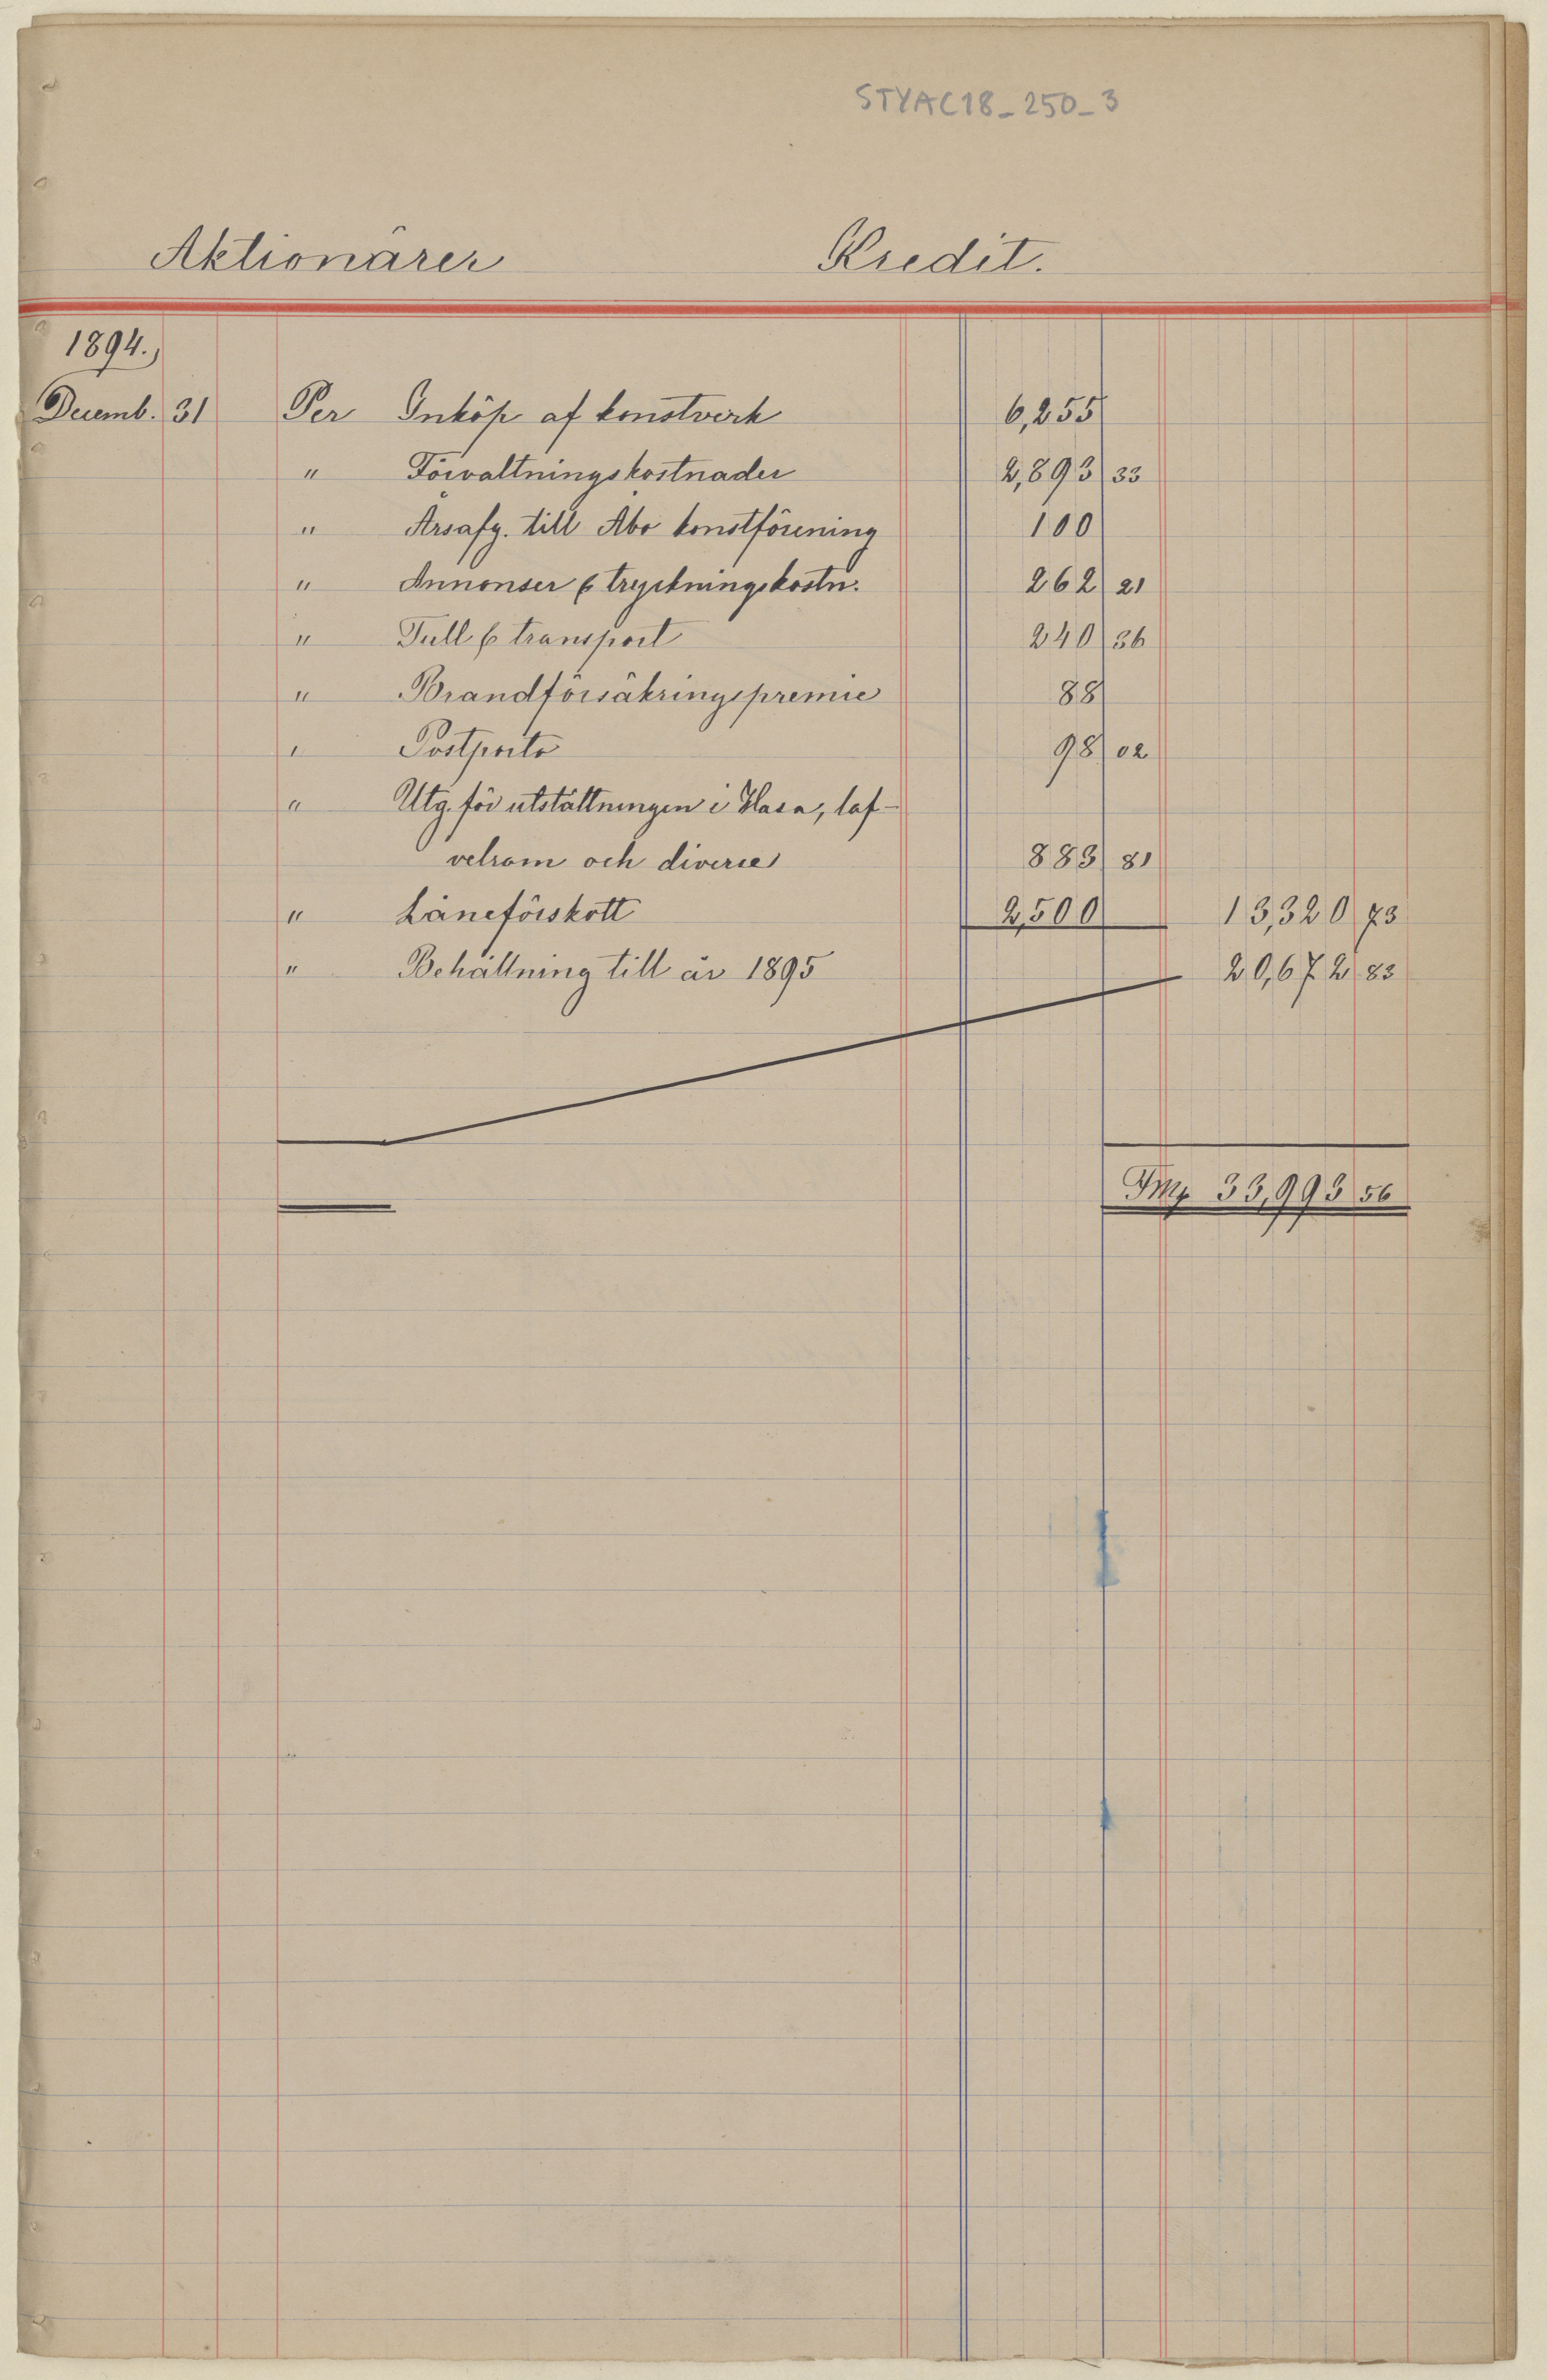 STYAC18_250_3
Aktionärer Kredit.
1894.
Decemb. 31 Per Inköp af konstverk 6,255
" Förvaltningskostnader 2,893 33
" Årsafg. till Åbo konstförening 100
" Annonser & tryckningskostn. 262 21
" Tull & transport 240 36
" Brandförsäkringspremie 88
" Postporto 98 02
" Utg. för utställningen i Wasa, taf-
velram och diverse 883 81
" Låneförskott 2,500 13,320 73
" Behållning till år 1895 20,672 83
Fmk 33,993 56